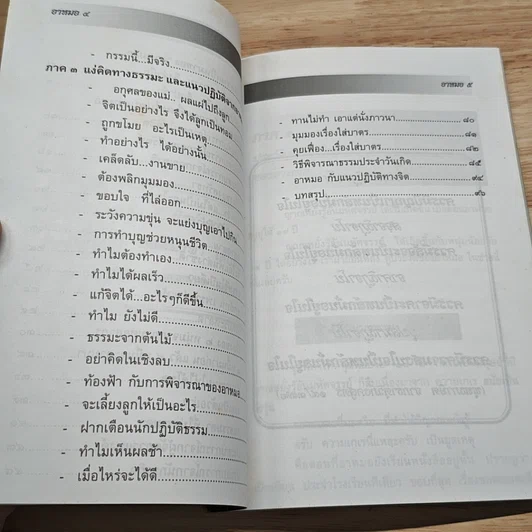 อาหมอ ๔
- กรรมนี้...มีจริง
ภาค ๓ แง่คิดทางธรรมะ และแนวปฏิบัติจาก
- อกุศลของแม่.. ผลแผ่ไปถึงลูก
จิตเป็นอย่างไร จึงได้ลูกเป็น
- ถูกขโมย อะไรเป็นเหตุ
- ทำอย่างไร ได้อย่างนั้น
- เคล็ดลับ...งานขาย
- ต้องพลิกมุมมอง
- ขอบใจ ที่ไล่ออก
- ระวังความขุ่น จะแย่งบุญเอาไปกิน
- การทำบุญช่วยหนุนชีวิต
- ทำไมต้องทำเอง
- ทำไมได้ผลเร็ว
- แก้จิตได้...อะไรๆก็ดีขึ้น
- ทำไม ยังไม่ดี
- ธรรมะจากต้นไม้
- อย่าคิดในเชิงลบ
- ท้องฟ้า กับการพิจารณาของอาหมอ
- จะเลี้ยงลูกให้เป็นอะไร
- ฝากเตือนนักปฏิบัติธรรม
- ทำไมเห็นผลช้า
- เมื่อไหร่จะได้ดี
อาหมอ ๕
- ทานไม่ทำ เอาแต่นั่งภาวนา ๘๐
- มุมมองเรื่องใส่บาตร ๘๑
- คุยเฟื่อง...เรื่องใส่บาตร ๘๒
- วิธีพิจารณาธรรมประจำวันเกิด ๘๕
- อาหมอ กับแนวปฏิบัติทางจิต ๙๔
- บทสรุป ๙๖